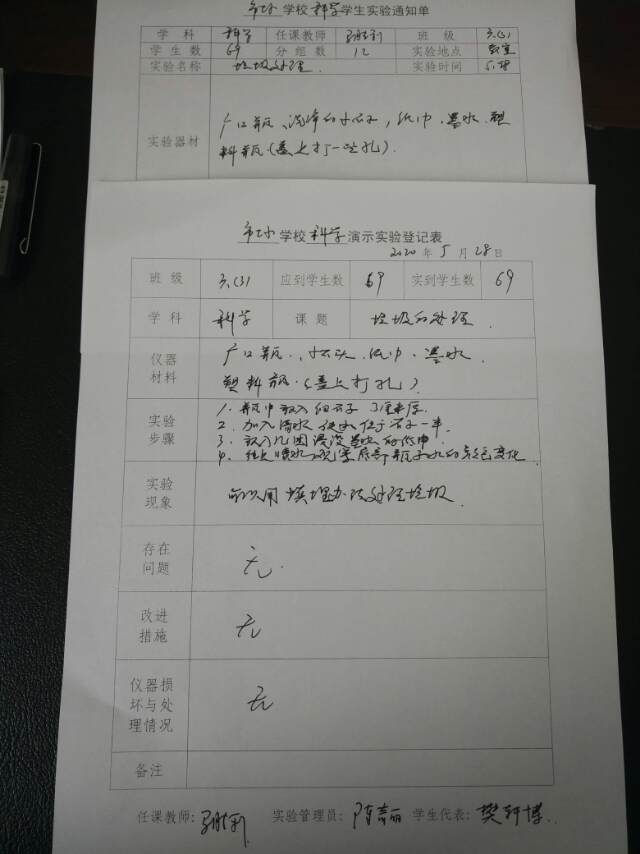 学校 科学 学生实验通知单
学科 科学 任课教师 班级 三(3)
学生数 69 分组数 12 实验地点 教室
实验名称 垃圾处理 实验时间 5.28
实验器材 广口瓶、洗净的小石子,纸巾、墨水、塑
料瓶(盖上打一些孔).
学校 科学 演示实验登记表
2020年5月28日
班级 三(3) 应到学生数 69 实到学生数 69
学科 科学 课题 垃圾的处理
仪器材料 广口瓶、小石头、纸巾、墨水、
塑料瓶.(盖上打孔)
实验步骤 1. 瓶中放入细石子 厘米厚.
2. 加入清水 使水位于石子一半.
3. 放入几团浸没墨水的纸巾
4. 往上喷水,观察底部瓶子水的颜色变化
实验现象 可以用填埋办法处理垃圾
存在问题 无.
改进措施 无
仪器损坏与处理情况 无
备注
任课教师: 实验管理员: 学生代表: 樊轩博.